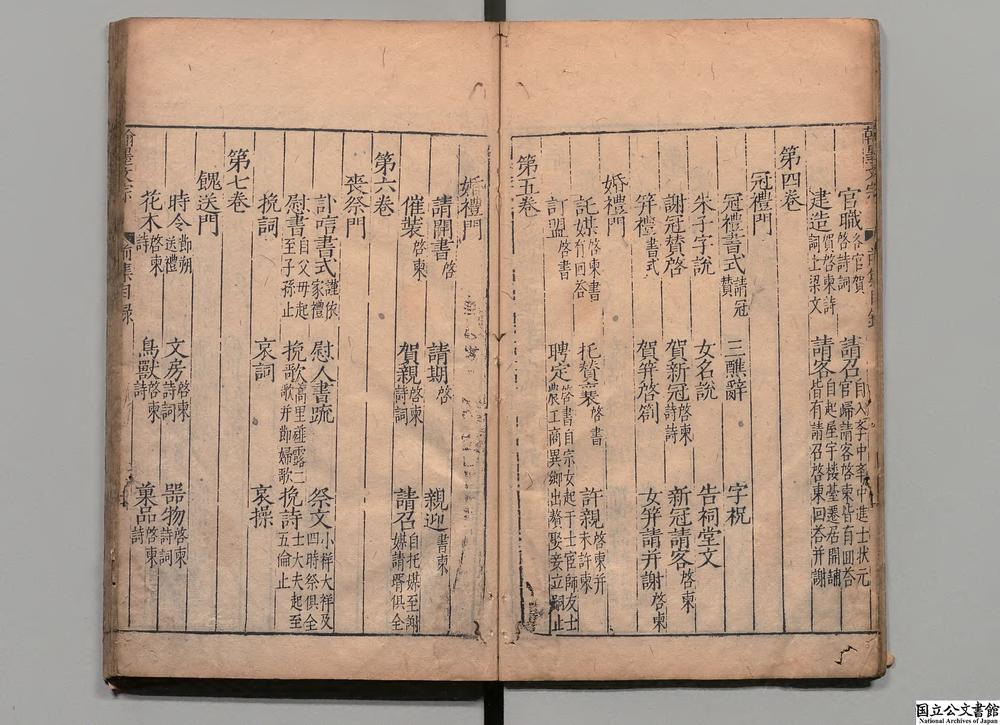 官職各官賀啓詩詞 請召自入李中李中進士狀元官歸請客啓柬皆有回荅
建造賀啓柬詩詞上梁文 請客自起屋宇楼基遷居開鋪皆有請召啓柬回荅并謝
第四卷
冠禮門
冠禮書式請冠賛 三醮辭 字祝
朱子字説 女名說 告祠堂文
謝冠賛啓 賀新冠啓柬詩詞 新冠請客啓柬
笄禮書式 賀笄啓劄 女笄請并謝啓柬
婚禮門
託媒啓柬書有回荅 托賛襄啓書 許親啓柬并未許柬
訂盟啓書 聘定啓書自宗女起于士宦師友士農工商異鄉出贅娶妾立嗣止
第五卷
婚禮門
請開書啓 請期啓 親迎書柬
催裝啓柬 賀親啓柬詩詞 請召自托媒至謝媒請壻俱全
第六卷
喪祭門
訃唁書式謹依家禮 慰人書疏 祭文小祥大祥及四時祭俱全
慰書自父母起至子孫止 挽歌蒿里薤露二歌并節婦歌 挽詩士大夫起至五倫止
挽詞 哀詞 哀操
第七卷
餽送門
時令節朔送禮 文房啓柬詩詞 器物啓柬詩詞
花木啓柬詩 鳥獸啓柬詩詞 菓品啓柬詩
翰墨文宗 前集目録
国立公文書館
National Archives of Japan